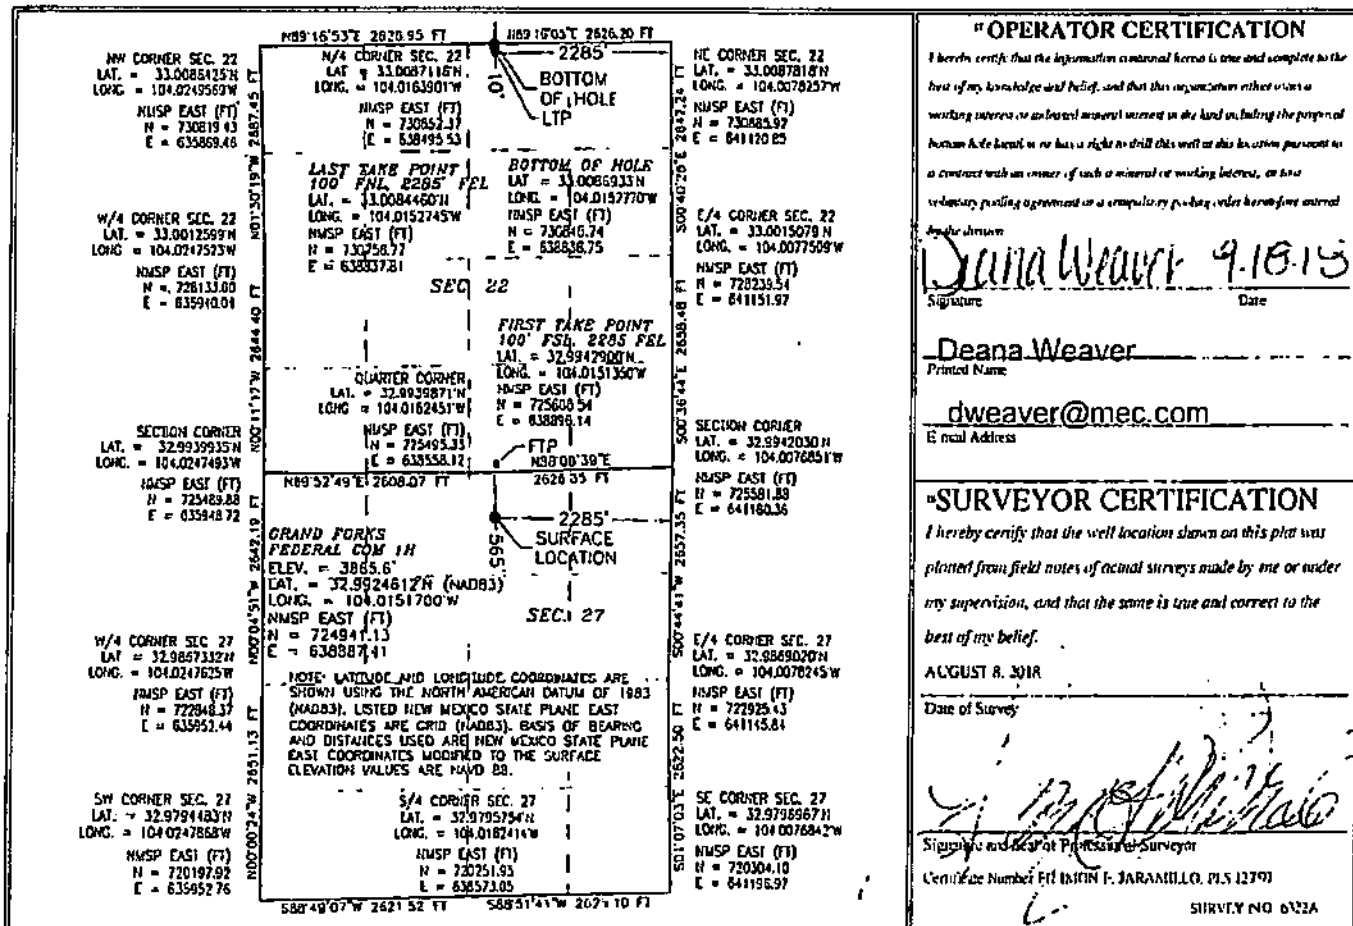 N89°16'53"E 2626.95 FT
2626.20 FT
NW CORNER SEC. 22
LAT. = 33.0086425'N
LONG. = 104.0249569'W
NMSP EAST (FT)
N = 730819.43
E = 635869.46
N/4 CORNER SEC. 22
LAT = 33.0087116'N
LONG. = 104.0163901'W
NMSP EAST (FT)
N = 730852.37
E = 638495.53
2285'
10'
BOTTOM
OF HOLE
LTP
NE CORNER SEC. 22
LAT. = 33.0087818'N
LONG. = 104.0078257'W
NMSP EAST (FT)
N = 730885.97
E = 641120.85
2687.45 FT
N01°30'19"W
2647.24 FT
S00°40'26"E
LAST TAKE POINT
100' FNL, 2285' FEL
LAT. = 33.0084460'N
LONG. = 104.0152745'W
NMSP EAST (FT)
N = 730756.77
E = 638837.81
BOTTOM OF HOLE
LAT = 33.0086933'N
LONG. = 104.0152770'W
NMSP EAST (FT)
N = 730846.74
E = 638836.75
W/4 CORNER SEC. 22
LAT. = 33.0012599'N
LONG = 104.0247523'W
NMSP EAST (FT)
N = 728133.00
E = 635940.04
E/4 CORNER SEC. 22
LAT. = 33.0015079'N
LONG. = 104.0077509'W
NMSP EAST (FT)
N = 728239.54
E = 641151.97
SEC 22
N00°11'17"W 2644.40 FT
S00°36'44"E 2658.48 FT
FIRST TAKE POINT
100' FSL, 2285 FEL
LAT. = 32.9942900'N
LONG. = 104.0151350'W
NMSP EAST (FT)
N = 725608.54
E = 638896.14
QUARTER CORNER
LAT. = 32.9939871'N
LONG = 104.0162451'W
NMSP EAST (FT)
N = 725495.35
E = 638558.12
SECTION CORNER
LAT. = 32.9939935'N
LONG. = 104.0247493'W
NMSP EAST (FT)
N = 725489.88
E = 635948.72
SECTION CORNER
LAT. = 32.9942030'N
LONG. = 104.0076851'W
NMSP EAST (FT)
N = 725581.88
E = 641180.36
FTP
N89°52'49"E 2608.07 FT
2626.35 FT
2285'
565'
SURFACE
LOCATION
GRAND FORKS
FEDERAL COM 1H
ELEV. = 3865.6'
LAT. = 32.9924612'N (NAD83)
LONG. = 104.0151700'W
NMSP EAST (FT)
N = 724941.13
E = 638887.41
SEC. 27
N00°04'51"W 2642.19 FT
S00°44'41"W 2657.35 FT
W/4 CORNER SEC. 27
LAT = 32.9867332'N
LONG. = 104.0247625'W
NMSP EAST (FT)
N = 722848.37
E = 635952.44
E/4 CORNER SEC. 27
LAT. = 32.9869020'N
LONG. = 104.0078245'W
NMSP EAST (FT)
N = 722925.43
E = 641145.84
NOTE: LATITUDE AND LONGITUDE COORDINATES ARE
SHOWN USING THE NORTH AMERICAN DATUM OF 1983
(NAD83). LISTED NEW MEXICO STATE PLANE EAST
COORDINATES ARE GRID (NAD83). BASIS OF BEARING
AND DISTANCES USED ARE NEW MEXICO STATE PLANE
EAST COORDINATES MODIFIED TO THE SURFACE
ELEVATION VALUES ARE NAVD 88.
N00°00'24"W 2651.13 FT
S01°07'03"E 2622.50 FT
SW CORNER SEC. 27
LAT. = 32.9794483'N
LONG. = 104.0247868'W
NMSP EAST (FT)
N = 720197.92
E = 635952.76
S/4 CORNER SEC. 27
LAT. = 32.9795754'N
LONG. = 104.0162414'W
NMSP EAST (FT)
N = 720251.93
E = 638573.05
SE CORNER SEC. 27
LAT. = 32.9796967'N
LONG. = 104.0076842'W
NMSP EAST (FT)
N = 720304.10
E = 641196.97
S88°49'07"W 2621.52 FT
S88°51'41"W
"OPERATOR CERTIFICATION
I hereby certify that the information contained herein is true and complete to the
best of my knowledge and belief, and that this organization either owns a
working interest or unleased mineral interest in the land including the proposed
bottom hole location or has a right to drill this well at this location pursuant to
a contract with an owner of such a mineral or working interest, or to a
voluntary pooling agreement or a compulsory pooling order heretofore entered
by the division
Deana Weaver 9-18-18
Signature Date
Deana Weaver
Printed Name
dweaver@mec.com
E mail Address
"SURVEYOR CERTIFICATION
I hereby certify that the well location shown on this plat was
plotted from field notes of actual surveys made by me or under
my supervision, and that the same is true and correct to the
best of my belief.
AUGUST 8, 2018
Date of Survey
Signature and Seal of Professional Surveyor
Certificate Number FILIMON F. JARAMILLO, PLS 12797
SURVEY NO. 6322A